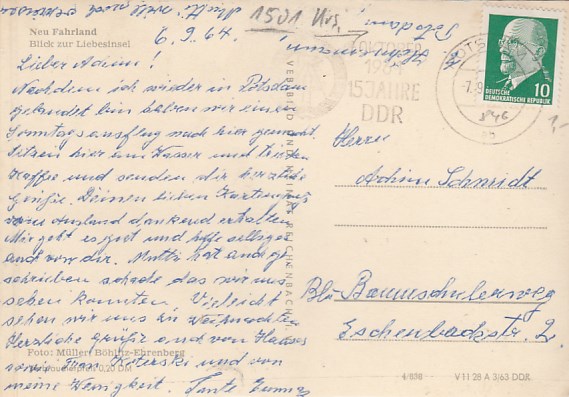 Neu Fahrland
Blick zur Liebesinsel
6.9.64.
Lieber Achim!
Nachdem ich wieder in Potsdam
gelandet bin haben wir einen
Sonntagsausflug nach hier gemacht.
Sitzen hier am Wasser und trinken
Kaffee und senden dir herzliche
Grüße. Deinen lieben Kartengruß
vom Ausland dankend erhalten.
Mir geht es gut und hoffe selbiges
auch von dir. Mutti hat auch ge-
schrieben schade das wir uns
sehen konnten. Vieleicht
sehen wir uns zu Weihnachten
Herzliche Grüße auch von
sowie Frau und von
meine Wenigkeit. Tante
Foto: Müller, Böhlitz-Ehrenberg
0,20 DM
1501 Uhr
Potsdam
OKTOBER
15 JAHRE
DDR
10
DEUTSCHE
DEMOKRATISCHE REPUBLIK
846
1,-
Herrn
Achim Schmidt
Bln-Baumschulenweg
Eschenbachstr. 2.
V 11 28 A 3/63 DDR